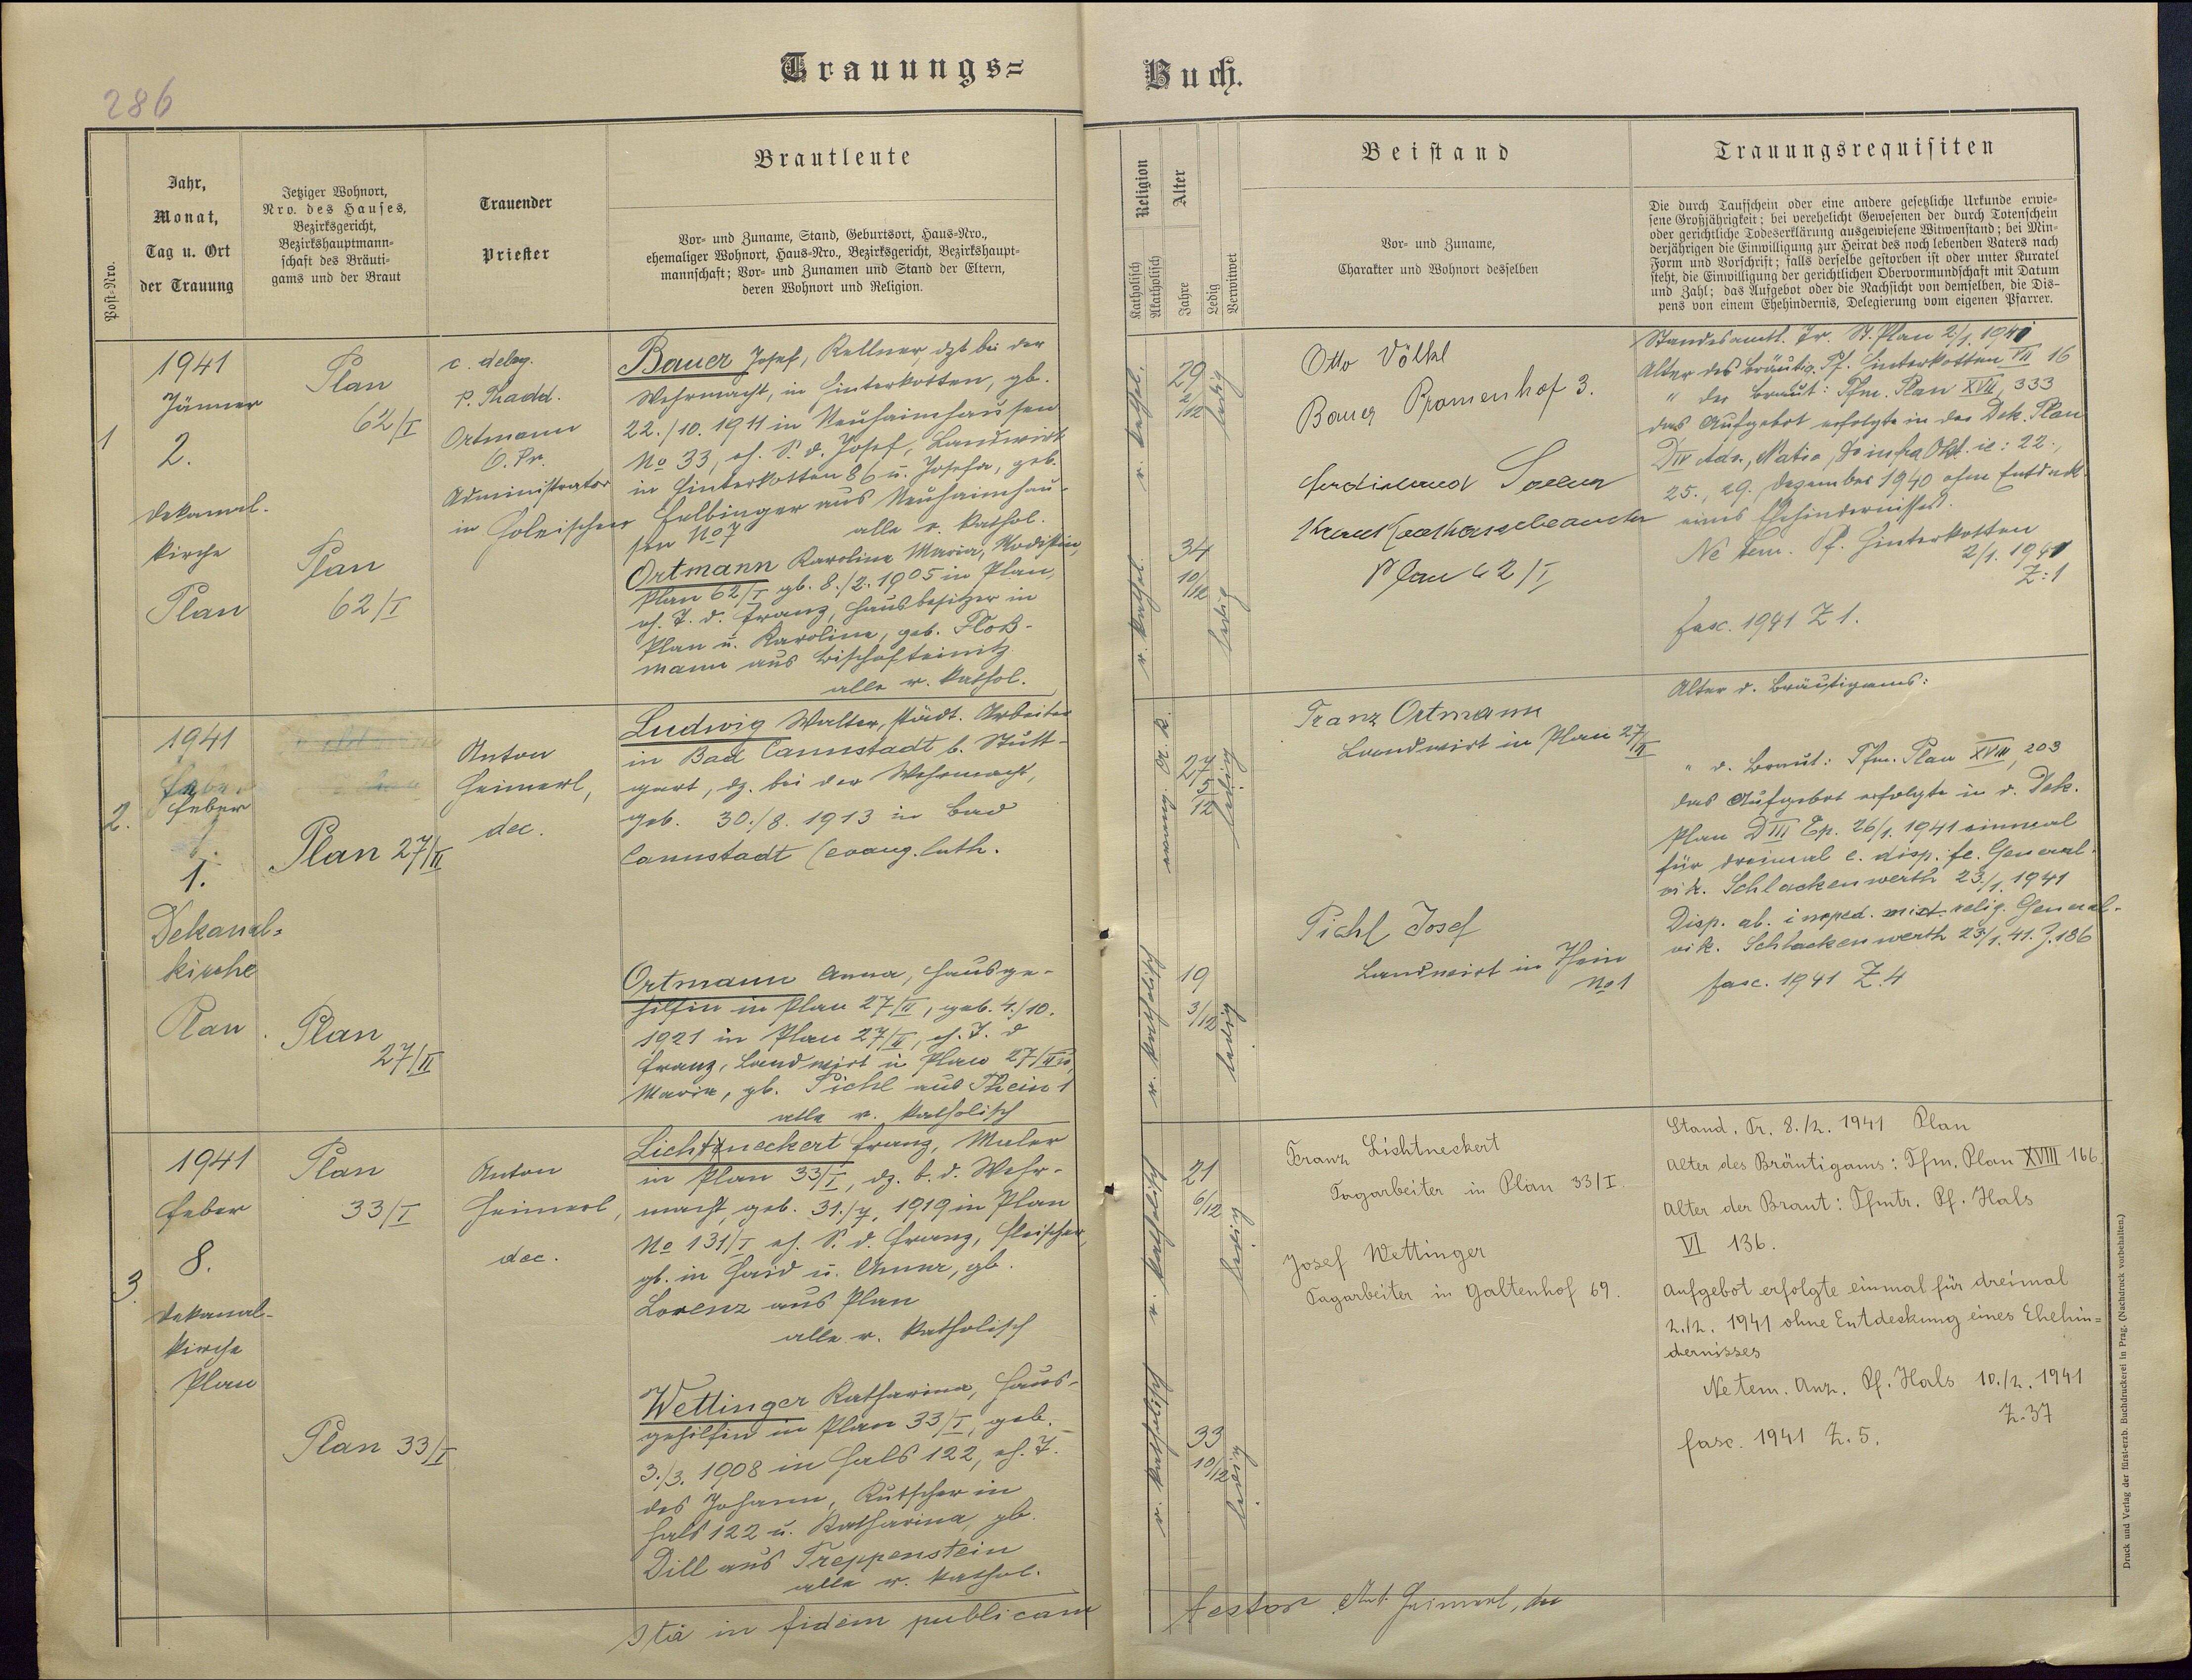 286
Trauungs=
Buch.
Post-Nro.
Jahr,
Monat,
Tag u. Ort
der Trauung
Jetziger Wohnort,
Nro. des Hauses,
Bezirksgericht,
Bezirkshauptmann-
schaft des Bräuti-
gams und der Braut
Trauender
Priester
Brautleute
Vor- und Zuname, Stand, Geburtsort, Haus-Nro.,
ehemaliger Wohnort, Haus-Nro., Bezirksgericht, Bezirkshaupt-
mannschaft; Vor- und Zunamen und Stand der Eltern,
deren Wohnort und Religion.
Religion
Katholisch
Akatholisch
Alter
Jahre
Ledig
Verwitwet
Beistand
Vor- und Zuname,
Charakter und Wohnort desselben
Trauungsrequisiten
Die durch Taufschein oder eine andere gesetzliche Urkunde erwie-
sene Großjährigkeit; bei verehelicht Gewesenen der durch Totenschein
oder gerichtliche Todeserklärung ausgewiesene Witwenstand; bei Min-
derjährigen die Einwilligung zur Heirat des noch lebenden Vaters nach
Form und Vorschrift; falls derselbe gestorben ist oder unter Kuratel
steht, die Einwilligung der gerichtlichen Obervormundschaft mit Datum
und Zahl; das Aufgebot oder die Nachsicht von demselben, die Dis-
pens von einem Ehehindernis, Delegierung vom eigenen Pfarrer.
1
1941
Jänner
2.
Dekanal-
kirche
Plan
Plan
62/I
Plan
62/I
c. deleg.
P. Thadd.
Ortmann
O. Pr.
Administrator
in
Bauer Josef, Kellner, dzt bei der
Wehrmacht, in Hinterkotten, gb.
22./10. 1911 in Neuhaimhausen
No 33, eh. S. d. Josef, Landwirt
in Hinterkotten 86 u. Josefa, geb.
Helbinger aus Neuhaimhau-
sen No 7 alle r. kathol.
Ortmann Karolina Maria, Modistin,
Plan 62/I gb. 8./2. 1905 in Plan,
eh. T. d. Franz, Hausbesitzer in
Plan u. Karolina, geb. Floß-
mann aus Bischofteinitz
alle r. kathol.
r. kathol.
29
2/12
ledig
r. kathol.
34
10/12
ledig
Otto Völkl
Bauer Promenhof 3.
Ferdinand
Plan 62/I
Standesamtl. Tr. St. Plan 2./1. 1941
Alter des Bräutig. Pf. Hinterkotten VII 16
" der Braut: Tfm. Plan XVII, 333
das Aufgebot erfolgte in der Dek. Plan
D IV Adv., Nativ., D infra Okt. ie: 22.,
25., 29. Dezember 1940 ohne Entdeck.
eines Ehehindernisses.
Ne tem. Pf. Hinterkotten
2/1. 1941
Z: 1
fasc. 1941 Z 1.
2.
1941
Feber
1.
Dekanal=
kirche
Plan
Plan 27/II
Plan
27/II
Anton
Heimerl,
dec.
Ludwig Walter, städt. Arbeiter
in Bad Cannstadt b. Stutt-
gart, dz. bei der Wehrmacht,
geb. 30./8. 1913 in Bad
Cannstadt (evang. luth.
Ortmann Anna, Hausge-
hilfin in Plan 27/II, geb. 4./10.
1921 in Plan 27/II, eh. T. d
Franz, Landwirt in Plan 27/II u.
Maria, gb. Pichl aus Thein 1
alle r. katholisch
evang. A. B.
27
5/12
ledig
r. katholisch
19
3/12
ledig
Franz Ortmann
Landwirt in Plan 27/II
Pichl Josef
Landwirt in Thein
No 1
Alter d. Bräutigams:
" d. Braut: Tfm. Plan XVIII, 203
das Aufgebot erfolgte in d. Dek.
Plan D III Ep. 26/1. 1941 einmal
für dreimal c. disp. fe. General-
vik. Schlackenwerth 23./1. 1941
Disp. ab. imped. mixt. relig. General-
vik. Schlackenwerth 23./1. 41. Z. 186
fasc. 1941 Z. 4
3.
1941
Feber
8.
Dekanal-
kirche
Plan
Plan
33/I
Plan 33/I
Anton
Heimerl,
dec.
Lichtneckert Franz, Maler
in Plan 33/I, dz. b. d. Wehr-
macht, geb. 31./7. 1919 in Plan
No 131/I eh. S. d. Franz, Fleischer
gb. in Haid u. Anna, gb.
Lorenz aus Plan
alle r. katholisch
Wettinger Katharina, Haus-
gehilfin in Plan 33/I, geb.
3./3. 1908 in Hals 122, eh. T.
des Johann, Kutscher in
Hals 122 u. Katharina, gb.
Dill aus Treppenstein
alle r. kathol.
r. katholisch
21
6/12
ledig
r. katholisch
33
10/12
ledig
Franz Lichtneckert
Tagarbeiter in Plan 33/I.
Josef Wettinger
Tagarbeiter in Galtenhof 69.
Stand. Tr. 8./2. 1941 Plan
Alter des Bräutigams: Tfm. Plan XVIII 166.
Alter der Braut: Tfmtr. Pf. Hals
VI 136.
Aufgebot erfolgte einmal für dreimal
2./2. 1941 ohne Entdeckung eines Ehehin=
dernisses
Ne tem. Anz. Pf. Hals 10./2. 1941
Z. 37
fasc. 1941 Z. 5.
Ita in fidem publicam
testor Ant. Heimerl, dec
Druck und Verlag der fürst-erzb. Buchdruckerei in Prag. (Nachdruck vorbehalten.)